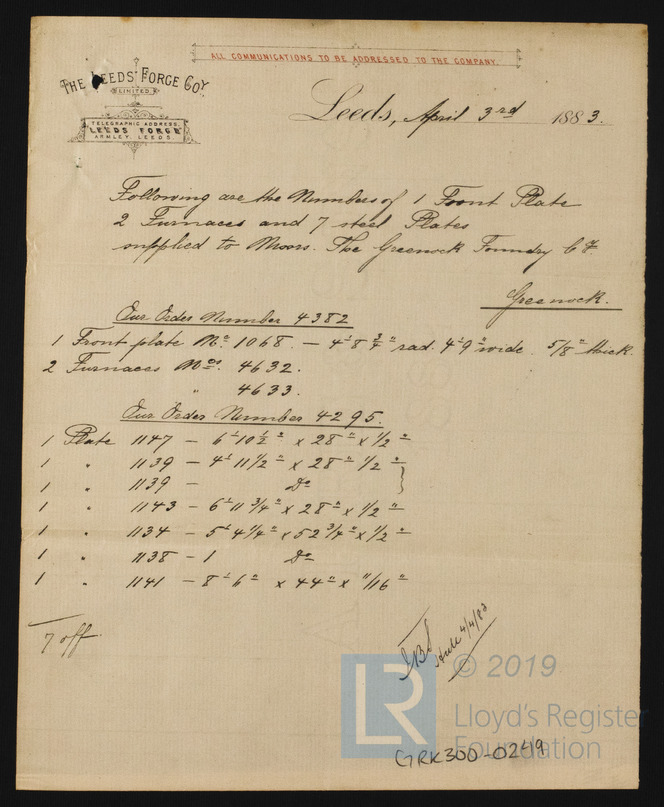 ALL COMMUNICATIONS TO BE ADDRESSED TO THE COMPANY.
THE LEEDS FORGE COY
LIMITED.
TELEGRAPHIC ADDRESS,
LEEDS FORGE
ARMLEY, LEEDS.
Leeds, April 3rd 1883.
Following are the Numbers of 1 Front Plate
2 Furnaces and 7 steel Plates
supplied to Messrs. The Greenock Foundry Co
Greenock.
Our Order Number 4382
1 Front plate No 1068. — 4' 8 3/4" rad. 4' 9" wide. 5/8" thick.
2 Furnaces Nos. 4632.
" 4633.
Our Order Number 4295.
1 Plate 1147 — 6' 10 1/2" x 28" x 1/2"
1 " 1139 — 4' 11 1/2" x 28" 1/2" }
1 " 1139 — Do
1 " 1143 — 6' 11 3/4" x 28" x 1/2"
1 " 1134 — 5' 4 1/4" x 52 3/4" x 1/2"
1 " 1138 — 1 Do
1 " 1141 — 8' 6" x 44" x 11/16"
7 off
4/4/83
LR
© 2019
Lloyd's Register
Foundation
GRK300-0249